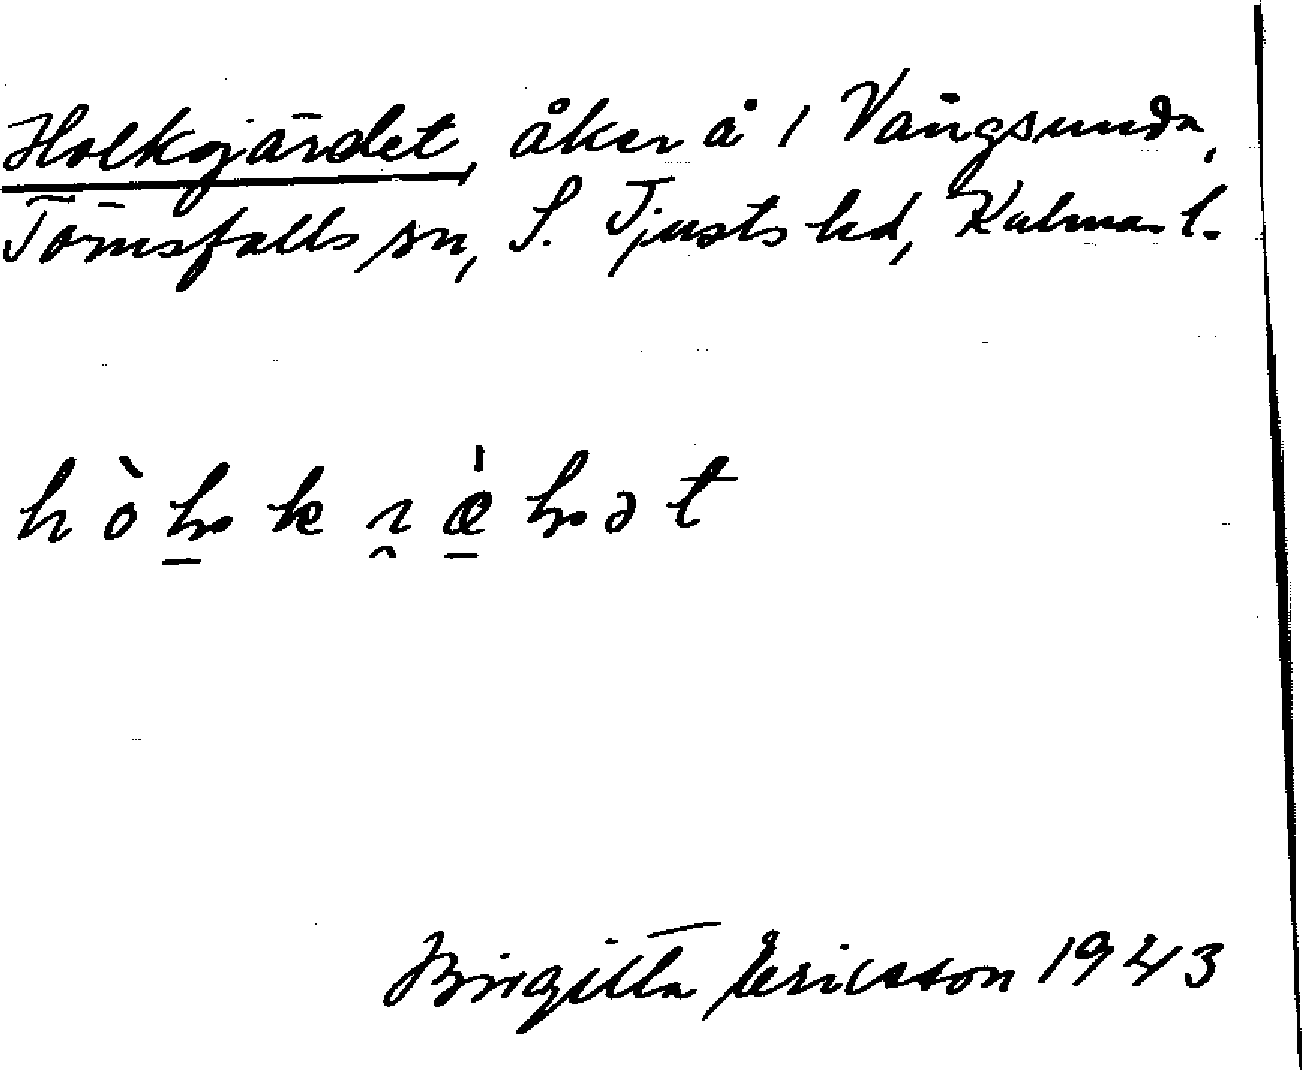 Holkgärdet, åker å 1 Vångsunda,
Törnsfalls sn, S. Tjusts hd, Kalmar l.
Birgitta Ericsson 1943